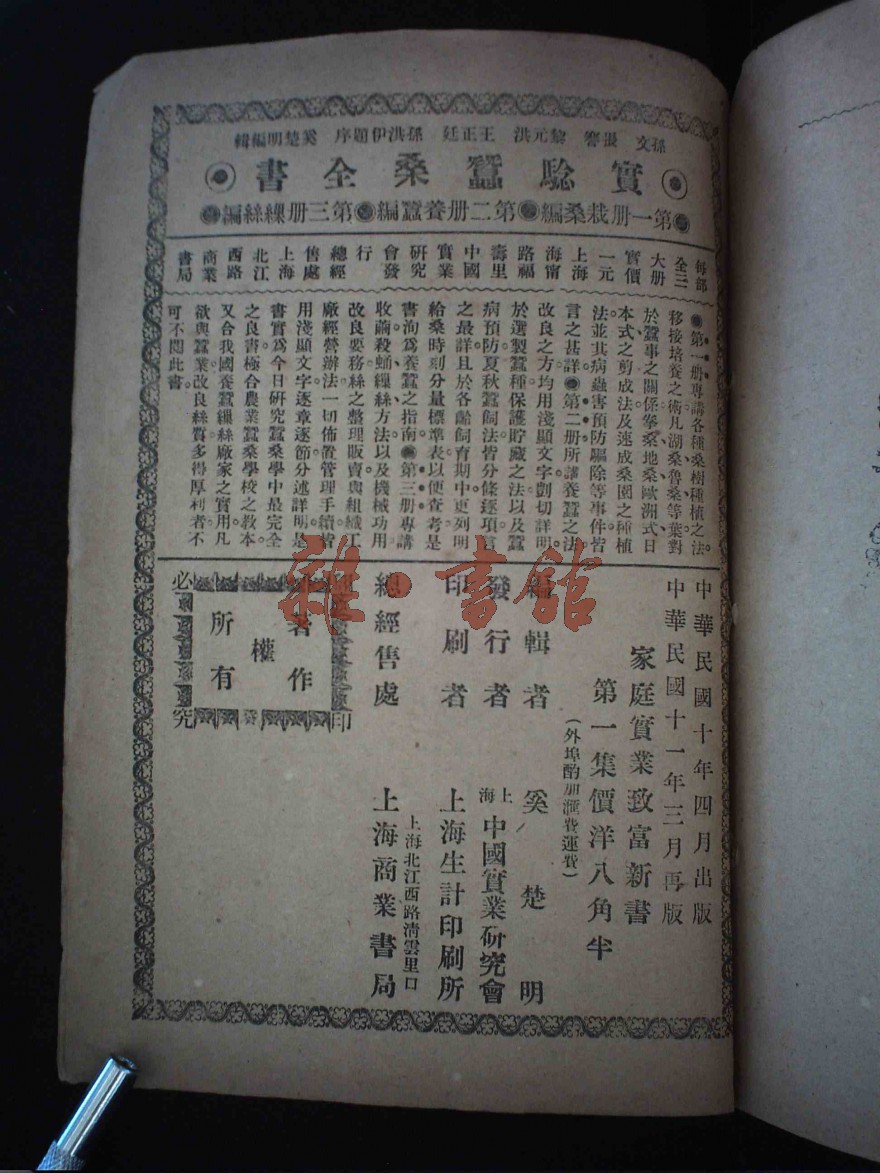 孫文 張謇 黎元洪 王正廷 孫洪伊題序 奚楚明編輯
實驗蠶桑全書
第一册栽桑編●第二册養蠶編●第三册繅絲編
每部
全三
大册
實價
一元
上海
海甯
路福
壽里
中國
實業
研究
會發
行
總經
售處
上海
北江
西路
商業
書局
●第一册專講各種桑樹種植之法。
移接培養之術凡湖桑魯桑等葉對
於蠶事之關係拳桑地桑歐洲式日
本式之剪成法及速成桑園之種植
法並其病蟲害預防驅除等事件皆
言之甚詳●第二册所講養蠶之法
改良之方均用淺顯文字剴切詳明
於選製蠶種保護貯藏之法以及蠶
病預防夏秋蠶飼法皆分條逐項言
之最詳且於各齡飼育期中更列明
給桑時刻分量標準表以便查考是
書洵爲養蠶之指南●第三册專講
收繭殺蛹繅絲方法以及機械功用
改良要務絲之整理販賣與組織工
廠經營辦法一切佈置管理手續皆
用淺顯文字逐章逐節分述詳明是
書實爲今日研究蠶桑學中最完全
之良書極合農業蠶桑學校之教本。
又合我國養蠶繅絲廠家之實用凡
欲與蠶業改良絲質多得厚利者不
可不閱此書。
中華民國十年四月出版
中華民國十一年三月再版
家庭實業致富新書
第一集價洋八角半
(外埠酌加滙費運費)
編輯者 奚楚明
發行者 上海中國實業研究會
印刷者 上海生計印刷所
上海北江西路淸雲里口
總經售處 上海商業書局
著作
權
所有
印
必究
雜·書館